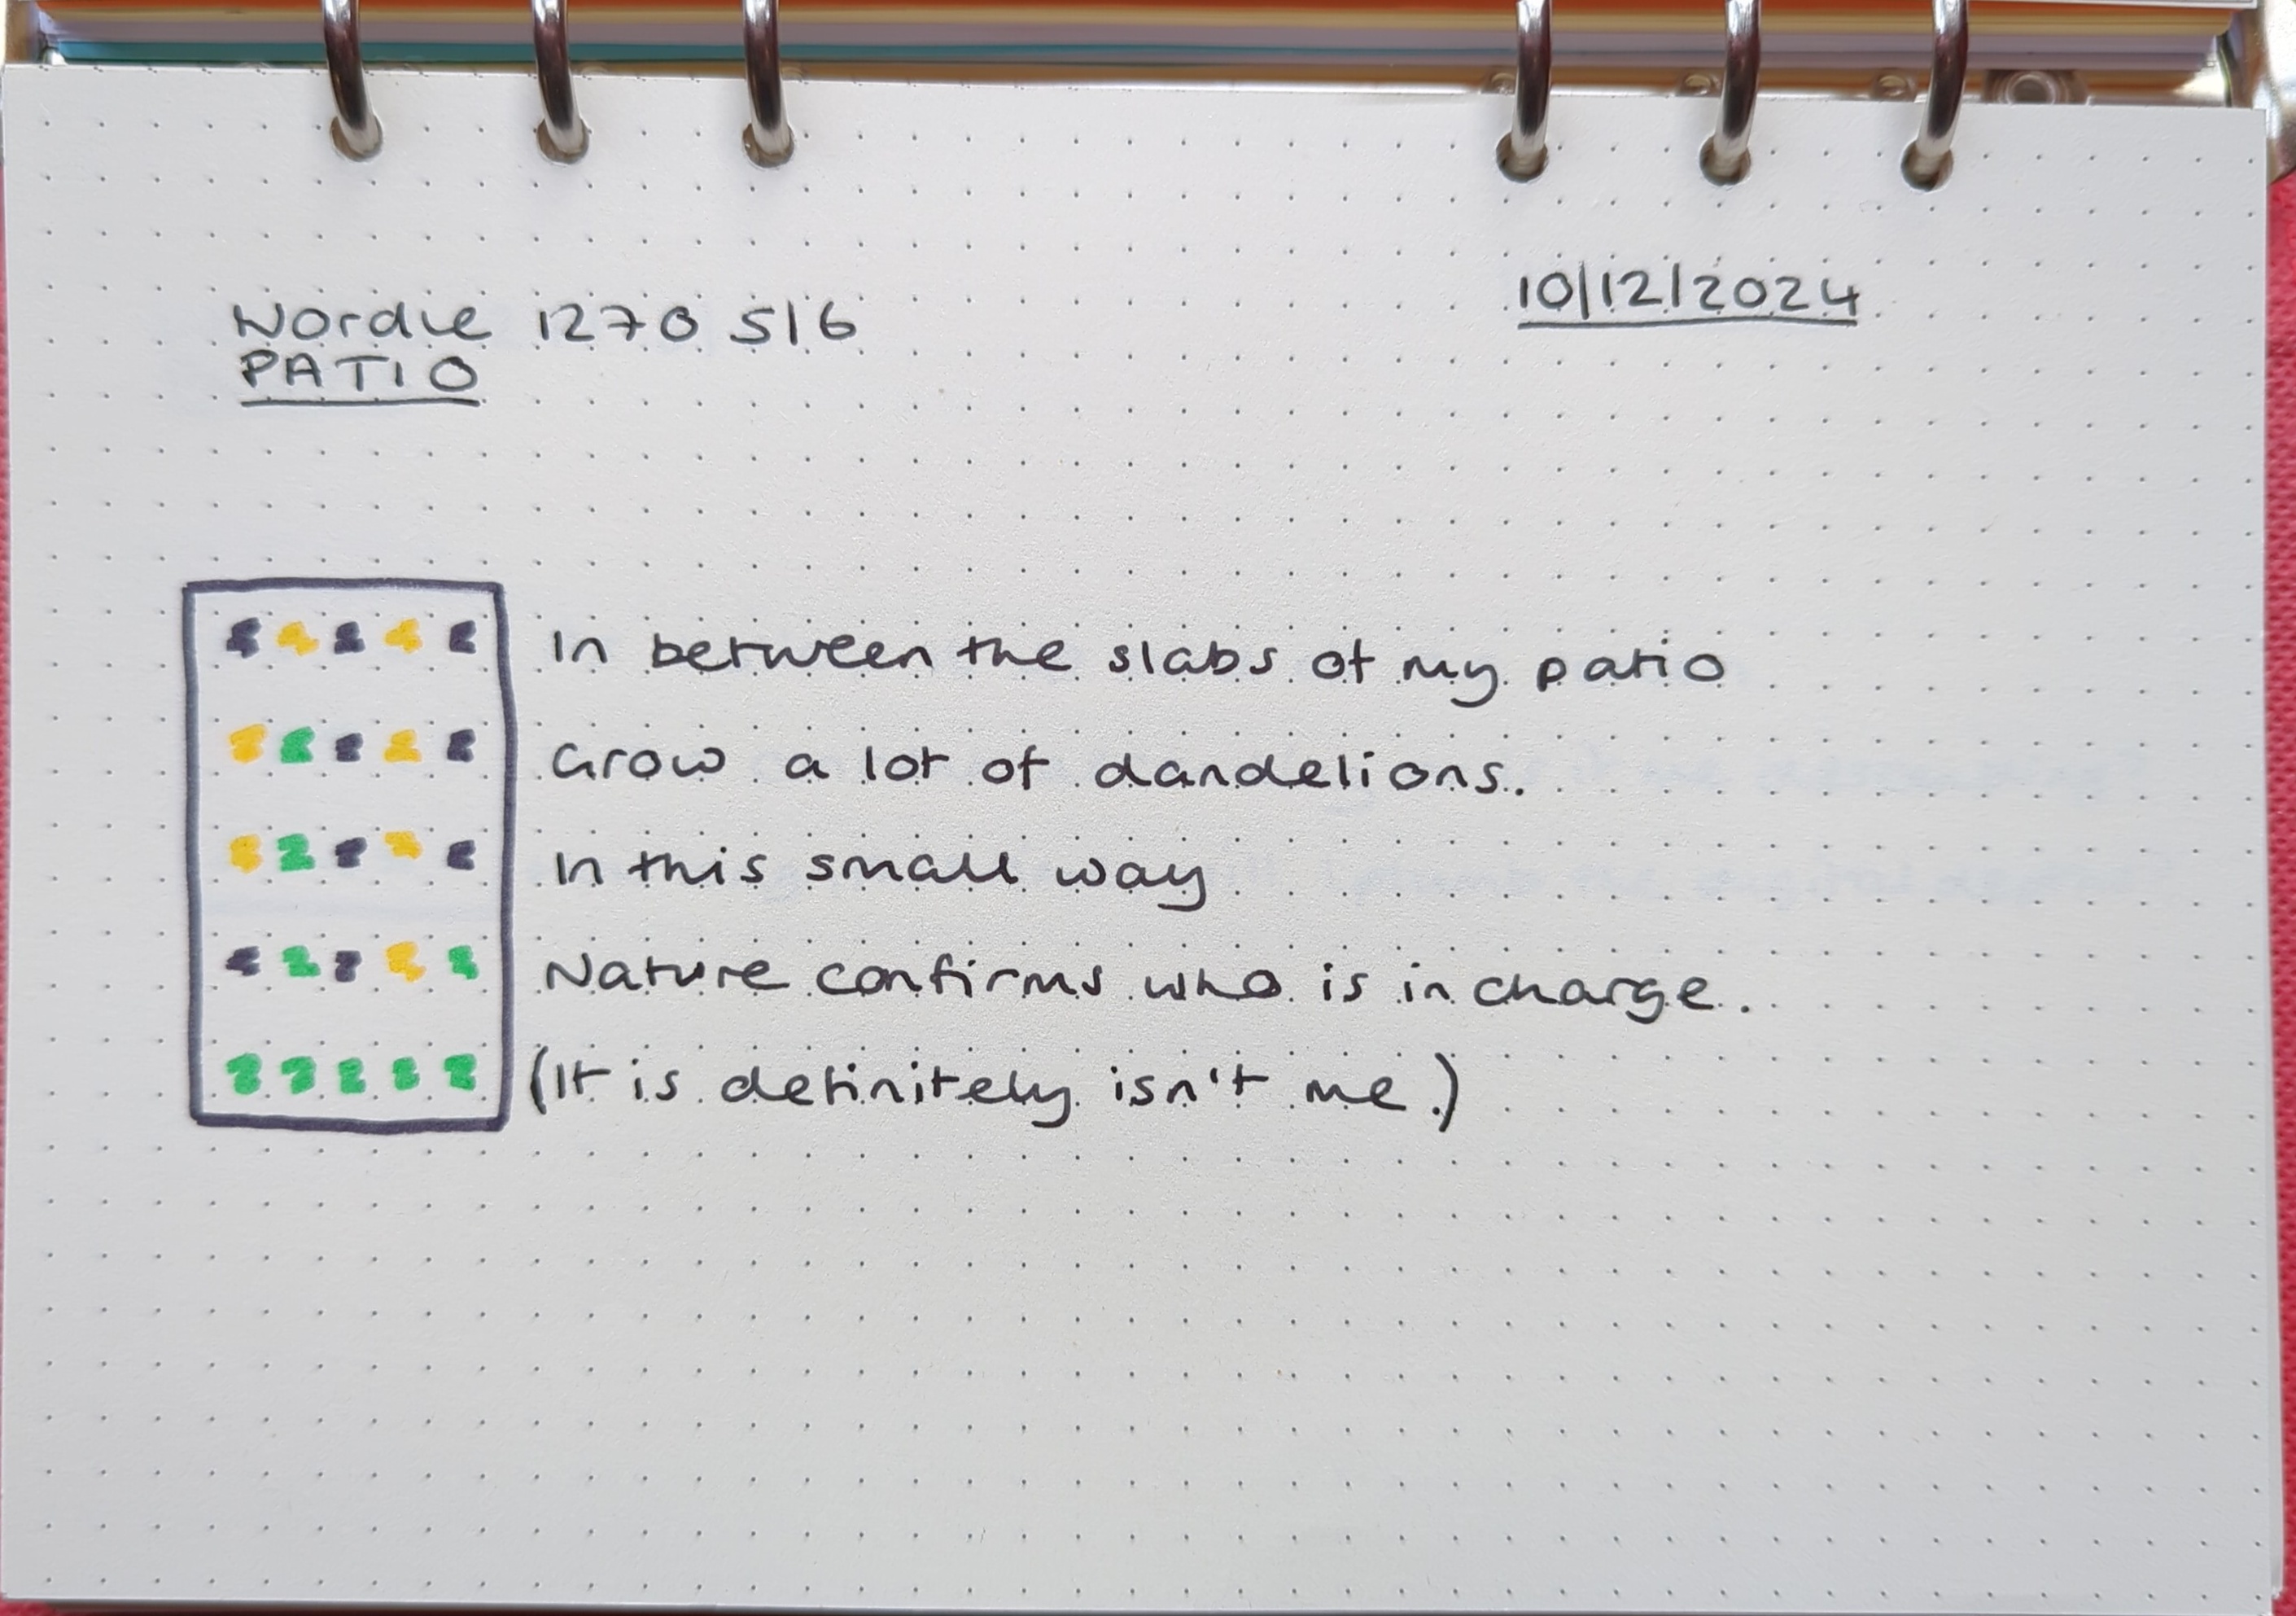 Wordle 1270 5/6
10/12/2024
PATIO
In between the slabs of my patio
Grow a lot of dandelions.
In this small way
Nature confirms who is in charge.
(It is definitely isn't me.)